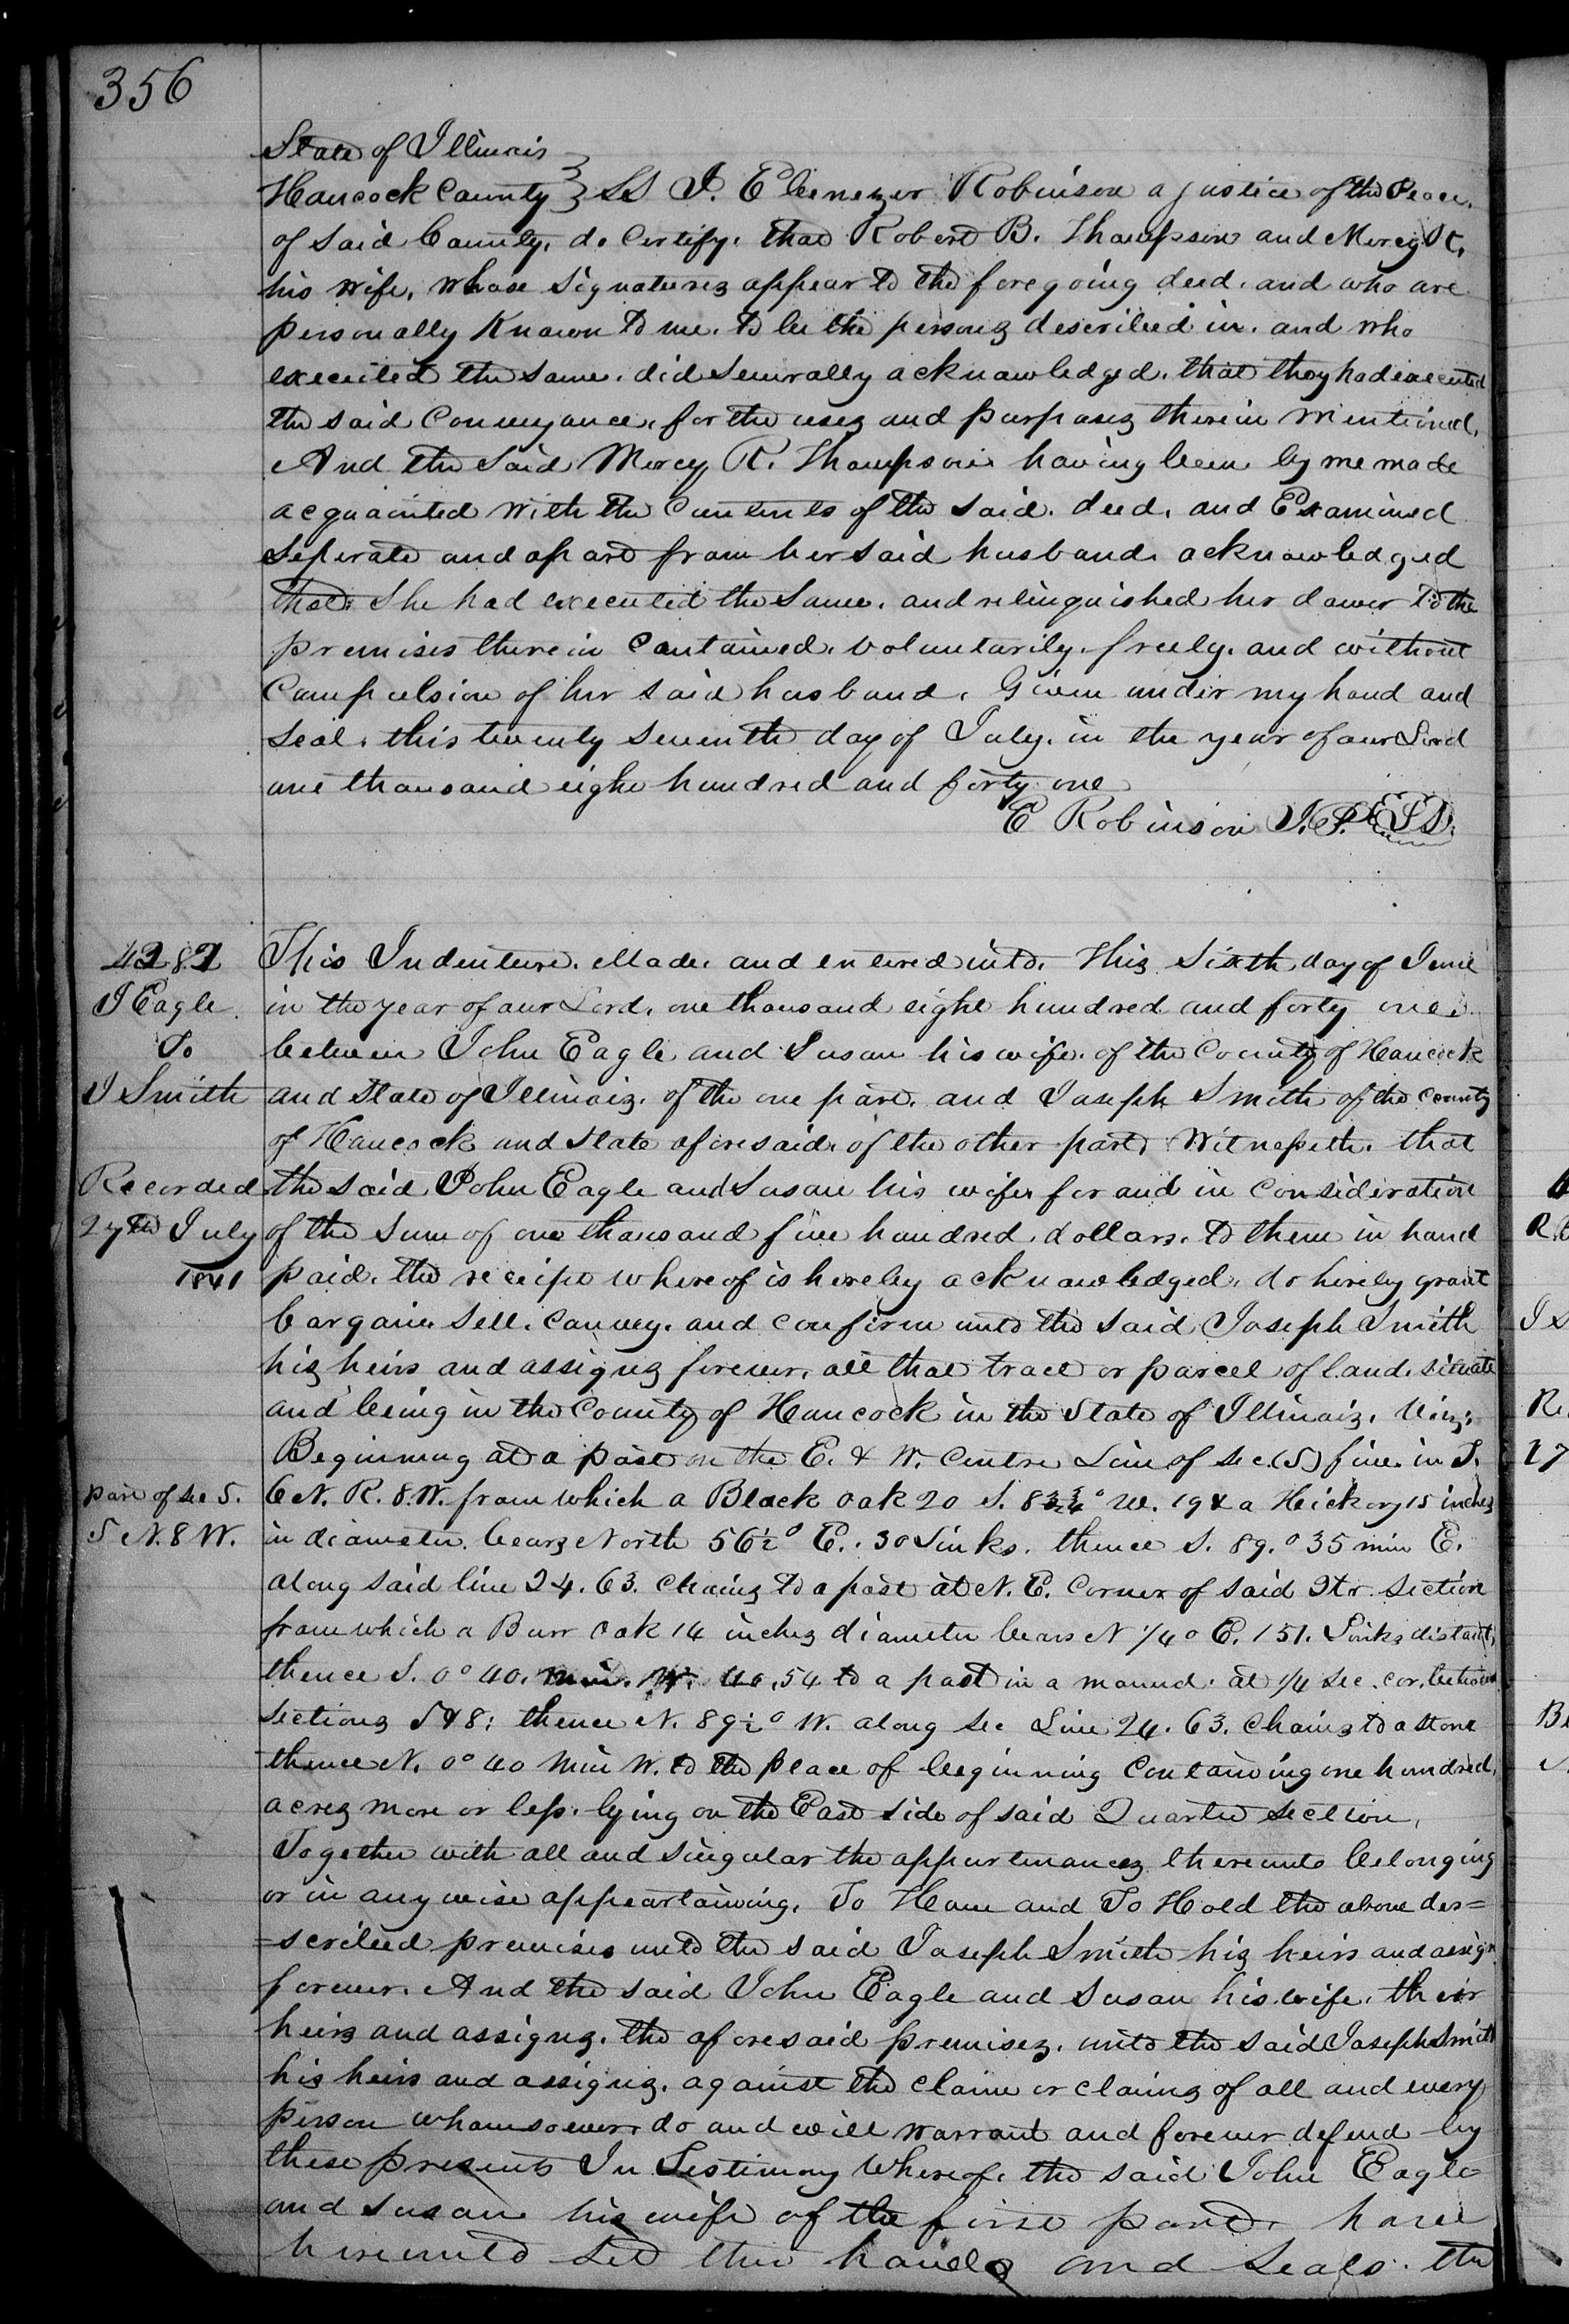 356
State of Illinois
Hancock County } SS I. Ebenezer Robinson a justice of the Peace.
of said County, do Certify. that Robert B. Thompson and Mercy R.
his wife, whose signatures appear to the foregoing deed. and who are
personally known to me. to be the persons described in. and who
executed the same. did severally acknowledged. that they had executed
the said Conveyance, for the uses and purposes therein mentioned.
And the said Mercy R. Thompson having been by me made
acquainted with the Contents of the said. deed. and Examined
Seperate and apart from her said husband. acknowledged
that she had executed the same. and relinquished her dower to the
premises therein Contained. voluntarily. freely. and without
Compulsion of her said husband. Given under my hand and
seal. this twenty seventh day of July. in the year of our Lord
one thousand eight hundred and forty one
E Robinson J.P. LS.
This Indenture. Made. and entered into. this sixth day of June
in the year of our Lord. one thousand eight hundred and forty one.
between John Eagle and Susan his wife. of the County of Hancock
and State of Illinois. of the one part. and Joseph Smith of the County
of Hancock and State aforesaid. of the other part. Witnesseth. that
the said John Eagle and Susan his wife for and in consideration
of the sum of one thousand five hundred dollars. to them in hand
paid. the receipt whereof is hereby acknowledged. do hereby grant
bargain. sell. convey. and confirm unto the said Joseph Smith
his heirs and assigns forever. all that tract or parcel of land. situate
and being in the County of Hancock in the State of Illinois. Viz:
Beginning at a post on the E. & W. Centre Line of Sec. (5) five. in T.
6 N. R. 8. W. from which a Black oak 20 S. 83¾° W. 19 & a Hickory 15 inches
in diameter. bears North 56½° E. 30 Links. thence S. 89.° 35 min E.
along said line 24.63. Chains to a post at N. E. Corner of said Qtr. Section
from which a Burr Oak 14 inches diameter bears N ¼° E. 151. Links distant,
thence S. 0° 40. min. W. 40.54 to a post in a mound. at ¼ Sec. cor. between
Sections 5 & 8; thence N. 89½° W. along Sec Line 24.63. Chains to a stone
thence N. 0° 40 min W. to the place of beginning Containing one hundred.
acres more or less. lying on the East side of said Quarter Section.
Together with all and singular the appurtenances thereunto belonging
or in any wise appeartaining. To Have and To Hold the above des=
=scribed premises unto the said Joseph Smith his heirs and assigns
forever. And the said John Eagle and Susan his wife. their
heirs and assigns. the aforesaid premises. unto the said Joseph Smith
his heirs and assigns. against the claim or claims of all and every
person whomsoever. do and will warrant and forever defend by
these presents In Testimony Whereof. the said John Eagle
and Susan his wife of the first part. have
hereunto set their hands and seals. the
J Eagle.
To
J Smith
Recorded
27th July
1841
part of Sec 5.
5 N. 8 W.